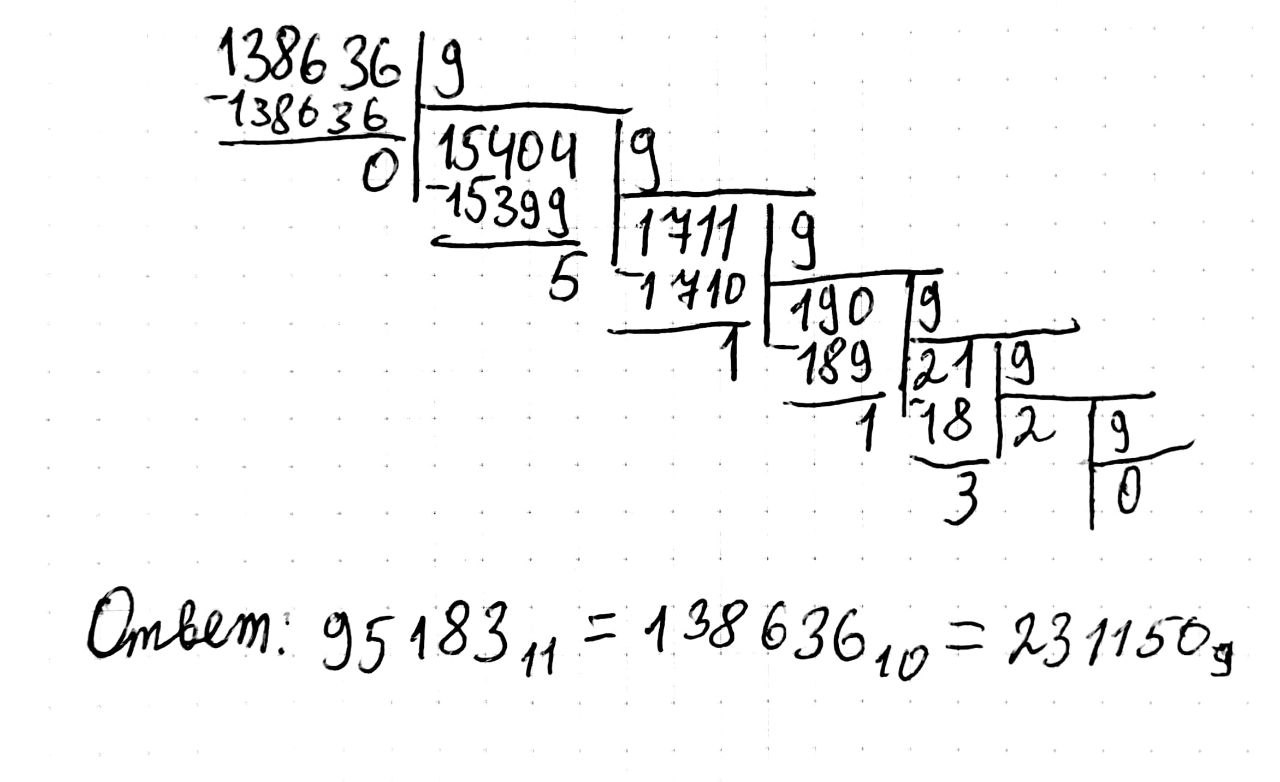 138636 9
-138636
0 15404 9
-15399
5 1711 9
-1710
1 190 9
-189
1 21 9
-18
3 2 9
0
Ответ: 95183₁₁ = 138636₁₀ = 231150₉